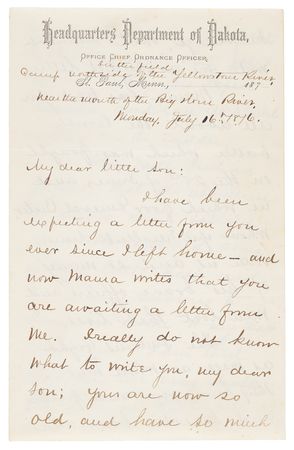 Headquarters Department of Dakota,
Office Chief Ordnance Officer,
In the field
Camp north side of the Yellowstone River,
St. Paul, Minn., 187
Near the mouth of the Big Horn River,
Monday, July 16th 1876.
My dear little Son:
I have been
expecting a letter from you
ever since I left home — and
now Mama writes that you
are awaiting a letter from
me. I really do not know
what to write you, my dear
son; you are now so
old, and have so much